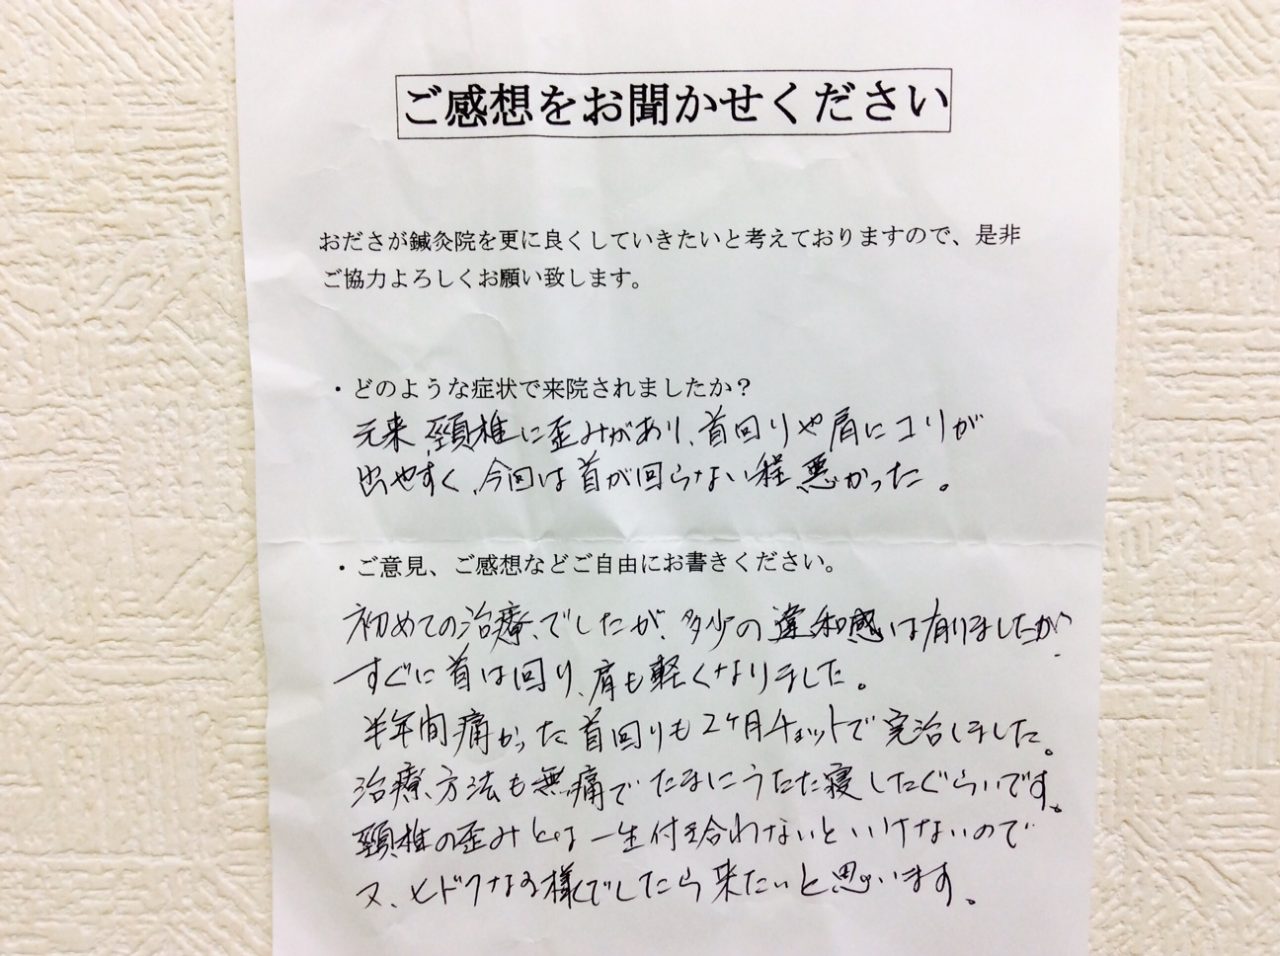 ご感想をお聞かせください
おださが鍼灸院を更に良くしていきたいと考えておりますので、是非
ご協力よろしくお願い致します。
・どのような症状で来院されましたか？
元来、頸椎に歪みがあり、首回りや肩にコリが
出やすく、今回は首が回らない程悪かった。
・ご意見、ご感想などご自由にお書きください。
初めての治療でしたが、多少の違和感は有りましたが
すぐに首は回り、肩も軽くなりました。
半年間痛かった首回りも2ヶ月チョットで完治しました。
治療方法も無痛でたまにうたた寝したぐらいです。
頸椎の歪みとは一生付き合わないといけないので
又、ヒドクなる様でしたら来たいと思います。